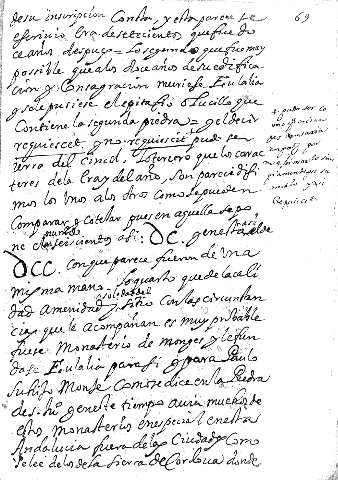 69
de su inscripcion Contra, y esta parece se
escrivio Era de setecientos que fue do
ce años despues = Lo segundo que fue muy
possible que a los doce años de su edifica
cion y Consagracion muriese Eulalia
y se le pusiese el epitafio o tucillo que
Contiene la segunda piedra = y el decir
requiescet y no requiescit pudo ser
yerro del Cincel. Lo tercero que los carac
teres de la Era y del año, son parecidissi
mos los unos a los otros como se pueden
Comparar y cotelar pues en aquella se po
ne el seiscientos asi: DC. y en esta
DCC. con que parece fueron de una
misma mano = Lo quarto que de la cali
dad Amenidad soledad del y sitio con las circunstan
cias que le acompañan es muy probable
fuese Monasterio de monges y le fun
dase Eulalia para si y para Paulo
su hijo Monge Como se dice en la Piedra
de su hijo y en este tiempo avia muchos de
estos Monasterios en especial en esta
Andalucia fuera de las Ciudades Como
se lee de los de la Sierra de Cordova donde
requiescit